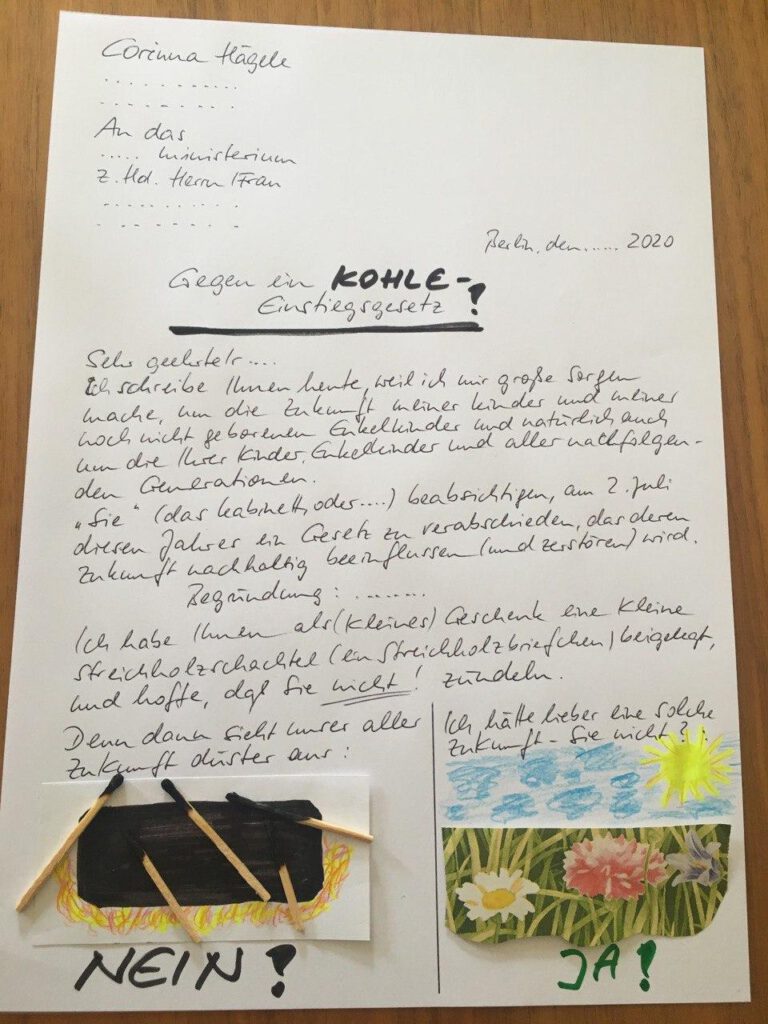 Corinna Hägele
............
............
An das
..... ministerium
z. Hd. Herrn/Frau
............
............
Berlin, den ..... 2020
Gegen ein KOHLE-
Einstiegsgesetz!
Sehr geehrte/r ....
Ich schreibe Ihnen heute, weil ich mir große Sorgen
mache, um die Zukunft meiner Kinder und meiner
noch nicht geborenen Enkelkinder und natürlich auch
um die Ihrer Kinder, Enkelkinder und aller nachfolgen-
den Generationen.
„Sie" (das Kabinett, oder ....) beabsichtigen, am 2. Juli
diesen Jahres ein Gesetz zu verabschieden, das deren
Zukunft nachhaltig beeinflussen (und zerstören) wird.
Begründung: ........
Ich habe Ihnen als (kleines) Geschenk eine kleine
Streichholzschachtel (ein Streichholzbriefchen) beigelegt,
und hoffe, daß Sie nicht! zündeln.
Denn dann sieht unser aller
Zukunft düster aus:
Ich hätte lieber eine solche
Zukunft - Sie nicht?
NEIN!
JA!